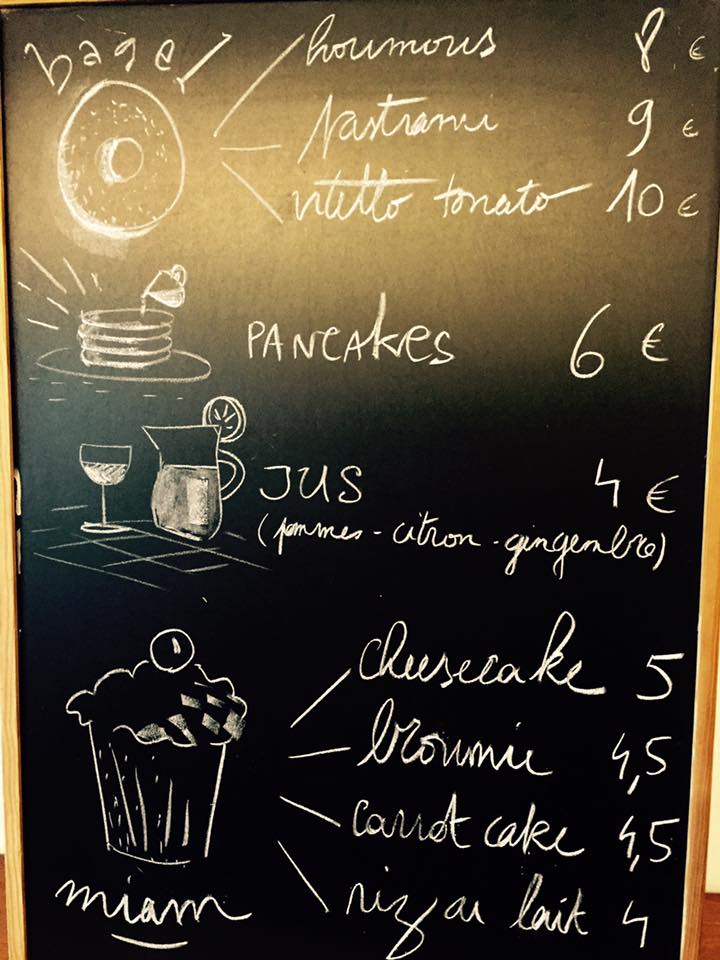 bagel
houmous 8 €
Pastrami 9 €
vitello tonato 10 €
PANCAKES 6 €
JUS 4 €
(pommes - citron - gingembre)
cheesecake 5
brownie 4,5
carrot cake 4,5
riz au lait 4
miam